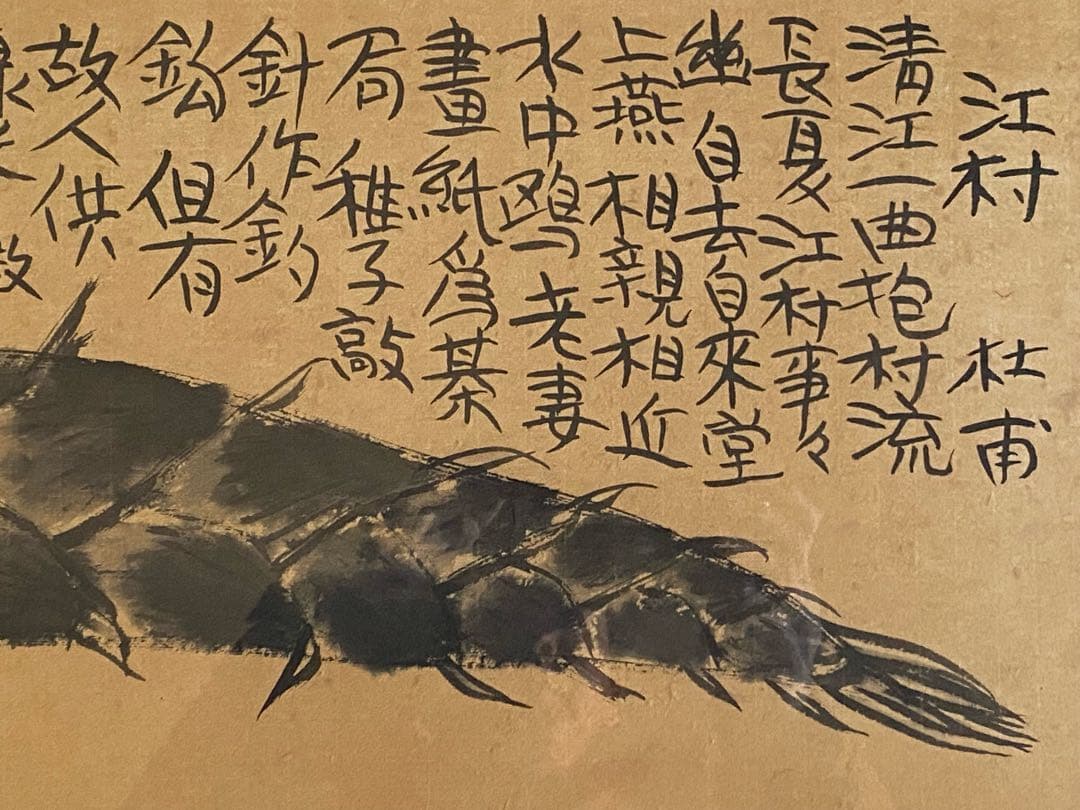 江村 杜甫
清江一曲抱村流
長夏江村事々
幽自去自來堂
上燕相親相近
水中鸥老妻
畫紙爲棊
局稚子敲
針作釣
鈎但有
故人供